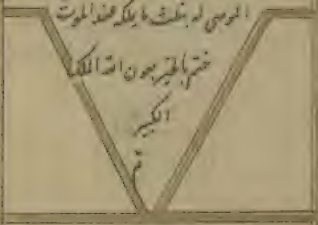 الموصى له بثلث ما يملكه عند الموت
ختم بالخير بعون الله الملك
الكبير
تم